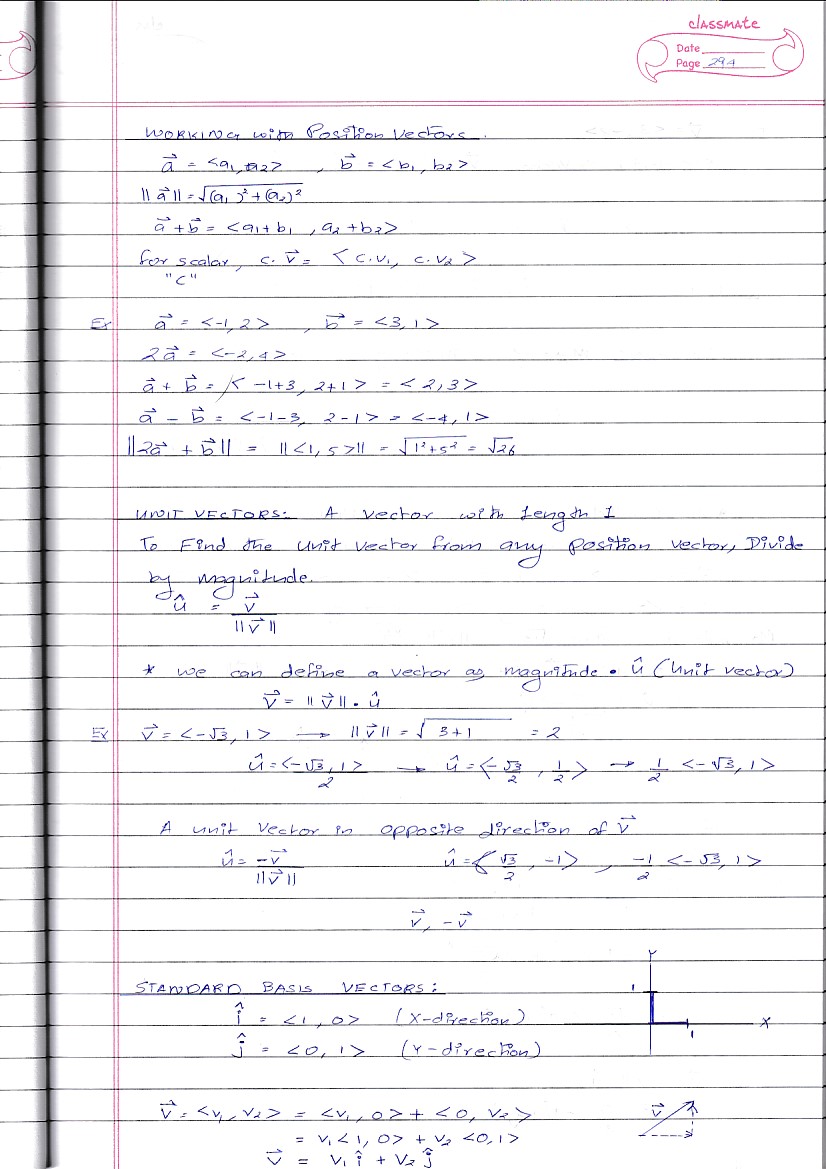 classmate
Date
Page 294
WORKING with Position Vectors.
a⃗ = <a₁, a₂> , b⃗ = <b₁, b₂>
||a⃗|| = √(a₁)² + (a₂)²
a⃗ + b⃗ = <a₁+b₁, a₂+b₂>
for scalar, c. v⃗ = <c.v₁, c.v₂>
"c"
Ex a⃗ = <-1, 2> , b⃗ = <3, 1>
2a⃗ = <-2, 4>
a⃗ + b⃗ = < -1+3, 2+1 > = < 2, 3>
a⃗ - b⃗ = <-1-3, 2-1> = <-4, 1>
||2a⃗ + b⃗|| = ||<1, 5>|| = √1²+5² = √26
UNIT VECTORS: A Vector with Length 1
To Find the Unit vector from any position vector, Divide
by magnitude.
û = v⃗ / ||v⃗||
* we can define a vector as magnitude • û (Unit vector)
v⃗ = ||v⃗|| • û
Ex v⃗ = <-√3, 1> → ||v⃗|| = √3+1 = 2
û = <-√3, 1> / 2 → û = <-√3/2, 1/2> → 1/2 <-√3, 1>
A unit Vector in opposite direction of v⃗
û = -v⃗ / ||v⃗|| û = <√3/2, -1> , -1/2 <-√3, 1>
v⃗, -v⃗
STANDARD BASIS VECTORS:
î = <1, 0> (X-direction)
ĵ = <0, 1> (Y-direction)
Y
1
X
1
v⃗ = <v₁, v₂> = <v₁, 0> + <0, v₂>
= v₁<1, 0> + v₂ <0, 1>
v⃗ = v₁ î + v₂ ĵ
v⃗